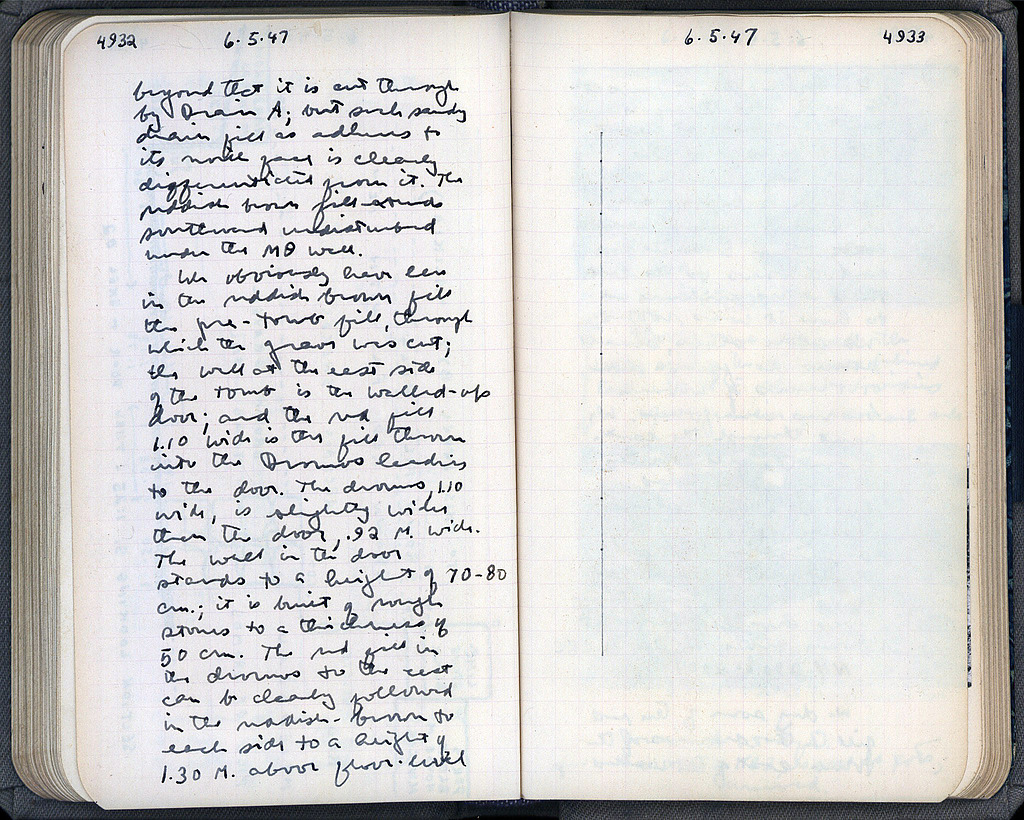 4932 6.5.47
beyond that it is cut through
by Drain A; but such sandy
drain fill as adheres to
its north face is clearly
differentiated from it. The
reddish brown fill extends
southward undisturbed
under the MΘ wall.
We obviously have here
in the reddish brown fill
the pre-tomb fill, through
which the grave was cut;
the wall at the east side
of the tomb is the walled-up
door; and the red fill
1.10 wide is the fill thrown
into the Dromos leading
to the door. The dromos, 1.10
wide, is slightly wider
than the door, .92 M. wide.
The wall in the door
stands to a height of 70-80
cm.; it is built of rough
stones to a thickness of
50 cm. The red fill in
the dromos to the east
can be clearly followed
in the reddish-brown to
each side to a height of
1.30 M. above floor-level
6.5.47 4933